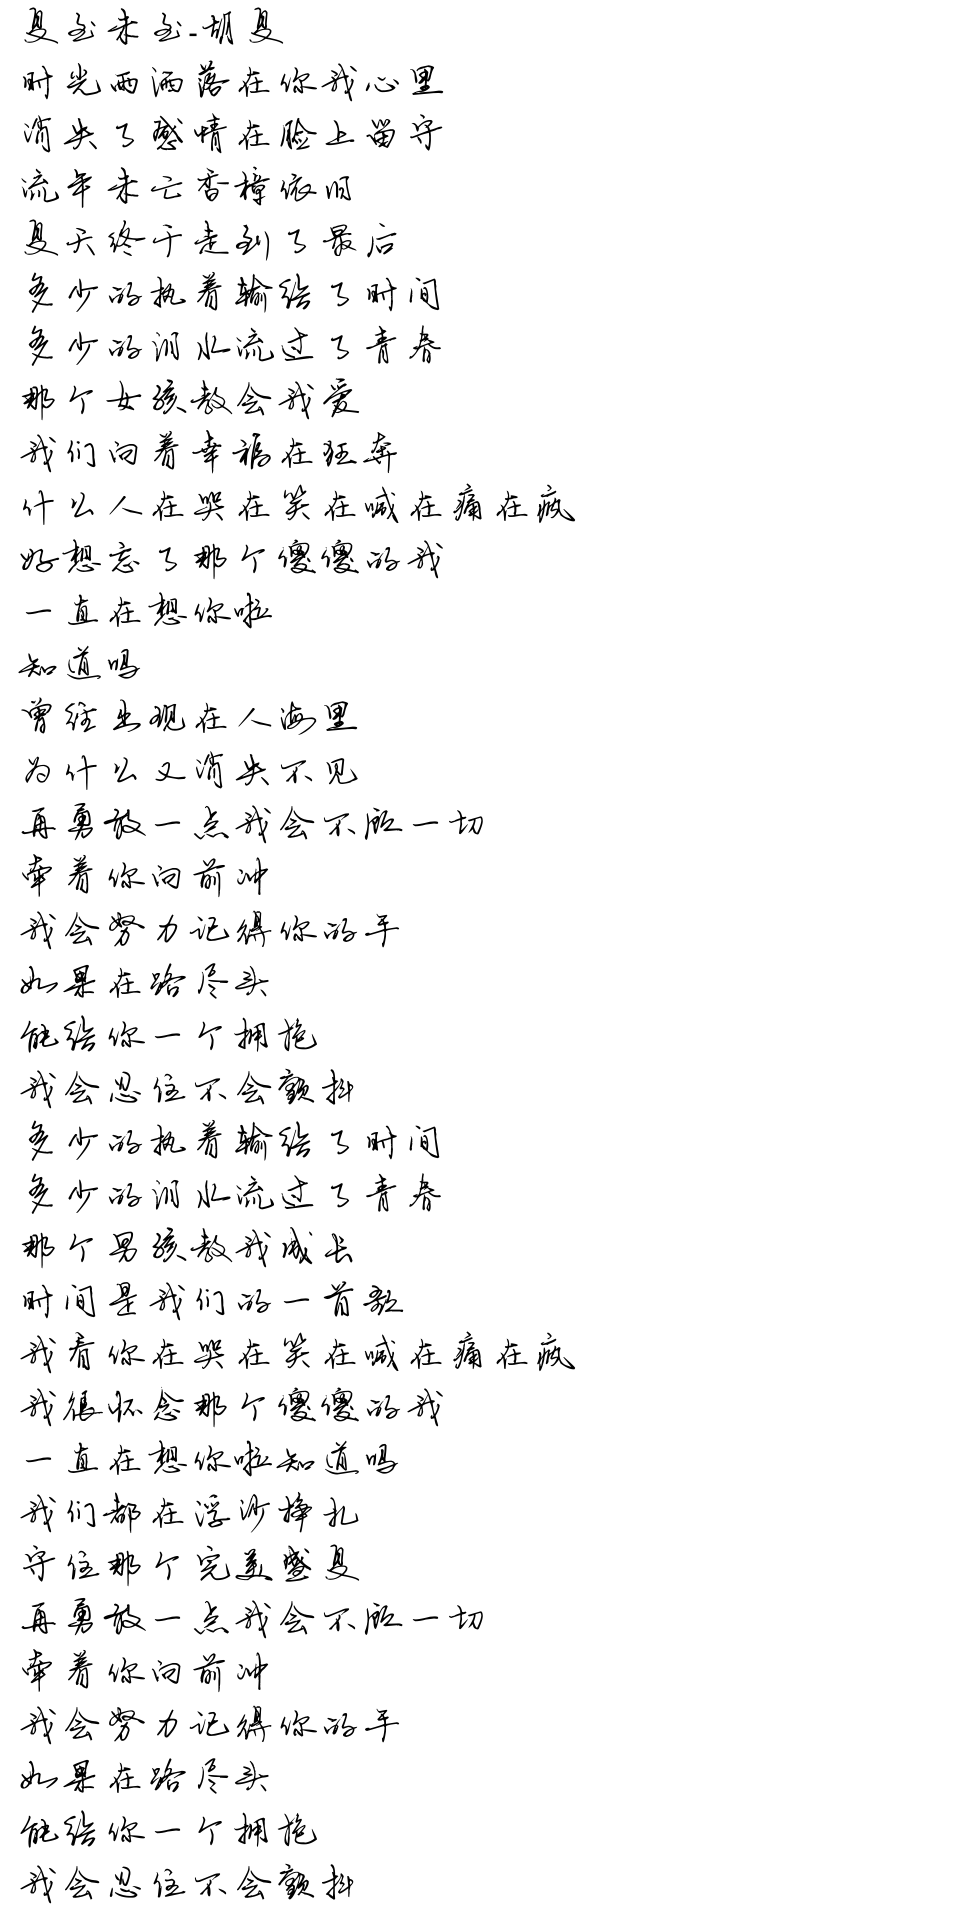 夏至未至-胡夏
时光雨洒落在你我心里
消失了感情在脸上留守
流年未亡香樟依旧
夏天终于走到了最后
多少的执着输给了时间
多少的泪水流过了青春
那个女孩教会我爱
我们向着幸福在狂奔
什么人在哭在笑在喊在痛在疯
好想忘了那个傻傻的我
一直在想你啦
知道吗
曾经出现在人海里
为什么又消失不见
再勇敢一点我会不顾一切
牵着你向前冲
我会努力记得你的手
如果在路尽头
能给你一个拥抱
我会忍住不会颤抖
多少的执着输给了时间
多少的泪水流过了青春
那个男孩教我成长
时间是我们的一首歌
我看你在哭在笑在喊在痛在疯
我很怀念那个傻傻的我
一直在想你啦知道吗
我们都在浮沙挣扎
守住那个完美盛夏
再勇敢一点我会不顾一切
牵着你向前冲
我会努力记得你的手
如果在路尽头
能给你一个拥抱
我会忍住不会颤抖